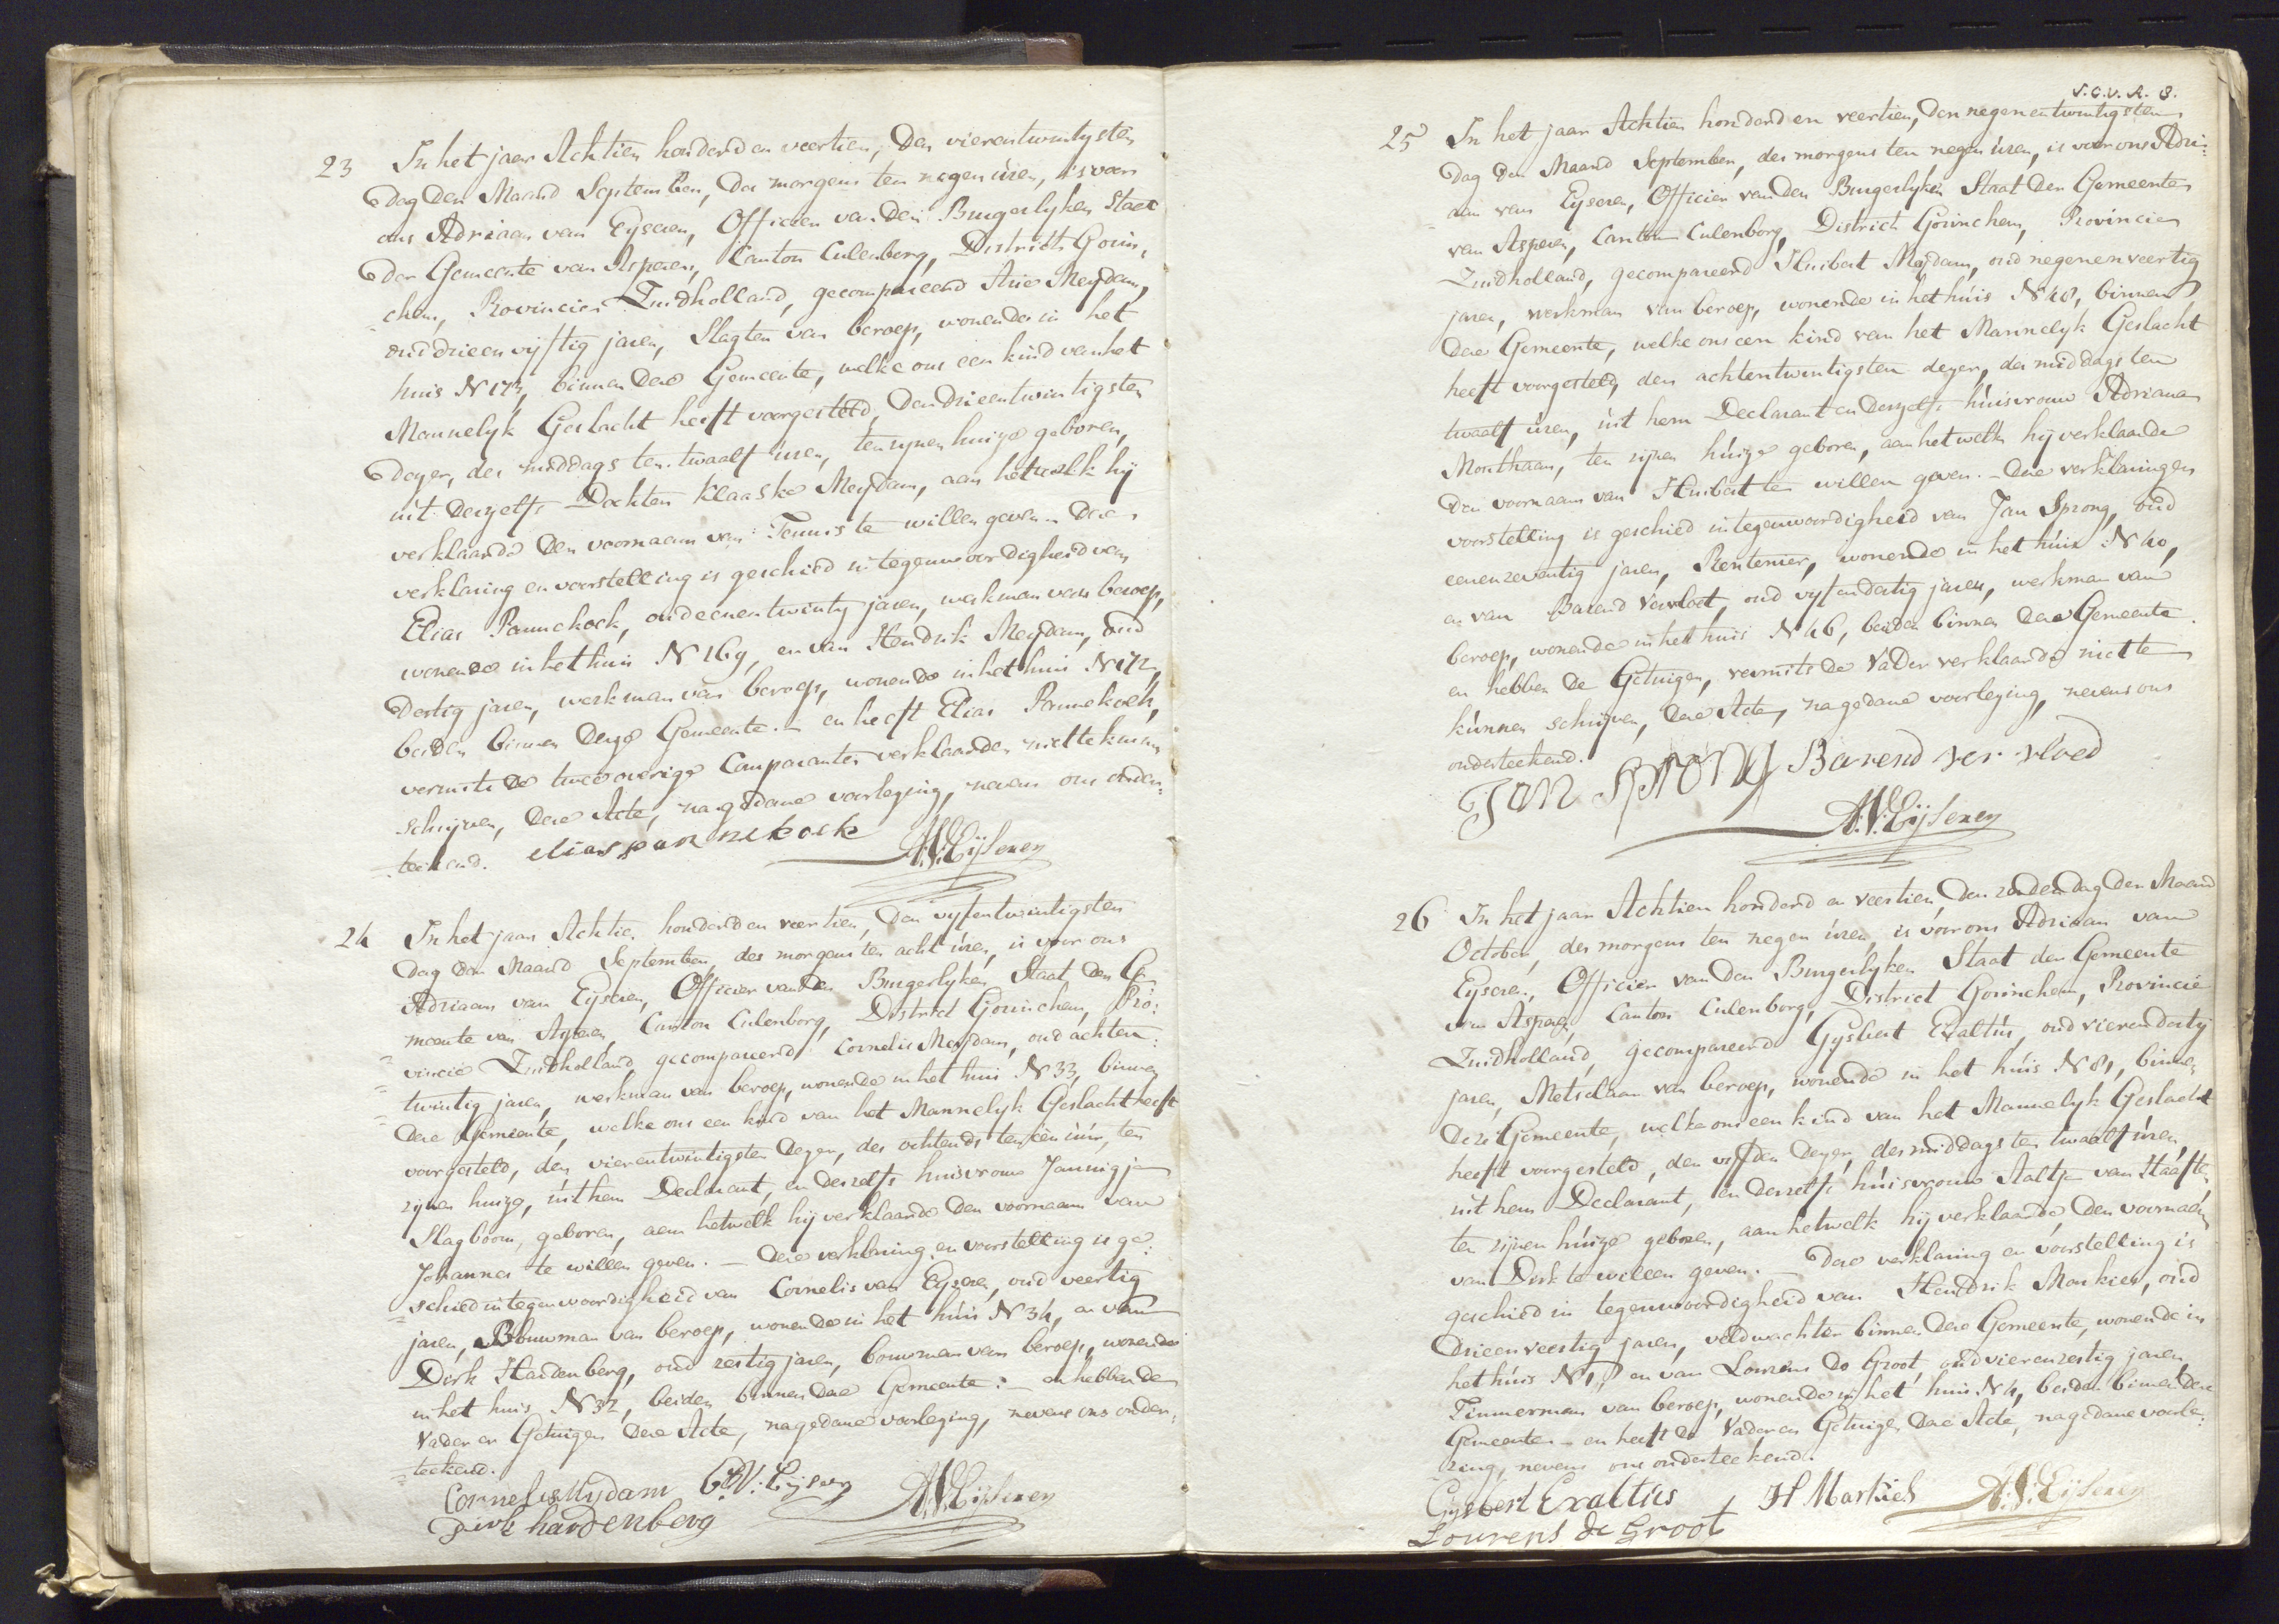 23 In het jaar Achtien honderd en veertien, den vierentwintigsten
dag der Maand September, des morgens ten negen úren, is voor
ons Adriaan van Eyseren, Officier van den Burgerlyken Staat
der Gemeente van Asperen, Canton Culenborg, District Gorin-
chem, Provincie Zuidholland, gecompareerd Arie Meydam,
oud drieenvijftig jaren, Slagter van beroep, wonende in het
huis N 173, binnen deze Gemeente, welke ons een kind van het
Mannelyk Geslacht heeft voorgesteld, den drieentwintigsten
dezer, des middags ten twaalf úren, ten zynen huize geboren,
uit deszelfs Dochter Klaaske Meydam, aan hetwelk hij
verklaarde den voornaam van Teunis te willen geven. Deze
verklaring en voorstelling is geschied in tegenwoordigheid van
Elias Pannekoek, oud eenentwintig jaren, werkman van beroep,
wonende in het huis N 169, en van Hendrik Meydam, oud
dertig jaren, werkman van beroep, wonende in het huis N 172,
beiden binnen deze Gemeente. en heeft Elias Pannekoek,
vermits de twee overige Comparanten verklaarden niet te kunnen
schrijven, deze Acte, na gedane voorlezing, nevens ons onder-
=teekend. elias pannekoek
A.V. Eijseren
24 In het jaar Achtien honderd en veertien, den vyfentwintigsten
dag der Maand September, des morgens ten acht úren, is voor ons
Adriaan van Eyseren, Officier van den Burgerlyken Staat der Ge-
=meente van Asperen, Canton Culenborg, District Gorinchem, Pro:
=vincie Zuidholland, gecompareerd Cornelis Meydam, oud achten:
=twintig jaren, werkman van beroep, wonende in het huis N 33, binnen
deze Gemeente, welke ons een kind van het Mannelyk Geslacht heeft
voorgesteld, den vierentwintigsten dezer, des ochtends ten één úúr, ten
zynen huize, uit hem Declarant, en deszelfs huisvrouw Jannigje
Slagboom, geboren, aan hetwelk hij verklaarde den voornaam van
Johannes te willen geven. — Deze verklaring en voorstelling is ge:
=schied in tegenwoordigheid van Cornelis van Eyseren, oud veertig
jaren, Bouwman van beroep, wonende in het húis N 34, en van
Dirk Hardenberg, oud zestig jaren, bouwman van beroep, wonende
in het huis N 32, beiden binnen deze Gemeente: — en hebben de
Vader en Getuigen deze Acte, na gedane voorlezing, nevens ons onder:
=teekend.
Cornelis Mydam C:V: Eijseren A.V. Eijseren
Dirk hardenberg
S.C.V.A. 8.
25 In het jaar Achtien honderd en veertien, den negenentwintigsten
dag der Maand September, des morgens ten negen úren, is voor ons Adri:
=aan van Eyseren, Officier van den Burgerlyken Staat der Gemeente
van Asperen, Canton Culenborg, District Gorinchem, Provincie
Zuidholland, gecompareerd Huibert Meydam, oud negenenveertig
jaren, werkman van beroep, wonende in het húis N 48, binnen
deze Gemeente, welke ons een kind van het Mannelyk Geslacht
heeft voorgesteld, den achtentwintigsten dezer, des middags ten
twaalf úren, úit hem Declarant en deszelfs húisvrouw Adriana
Monthaan, ten zijnen húize geboren, aan hetwelk hij verklaarde
den voornaam van Huibert te willen geven. — Deze verklaring en
voorstelling is geschied in tegenwoordigheid van Jan Sprong, oud
eenenzeventig jaren, Rentenier, wonende in het húis N 40,
en van Barend Vervloet, oud vyfendertig jaren, werkman van
beroep, wonende in het huis N 46, beiden binnen deze Gemeente.
en hebben de Getuigen, vermits de Vader verklaarde niet te
kúnnen schrijven, deze Acte, na gedane voorlezing, nevens ons
onderteekend.
Jan Sprong Barend ver vloed
A.V. Eijseren
26 In het jaar Achtien honderd en veertien, den zesden dag der Maand
October, des morgens ten negen úren, is voor ons Adriaan van
Eyseren, Officier van den Burgerlyken Staat der Gemeente
van Asperen, Canton Culenborg, District Gorinchem, Provincie
Zuidholland, gecompareerd Gysbert Exaltús, oud vierendertig
jaren, Metselaar van beroep, wonende in het húis N 81, binnen
deze Gemeente, welke ons een kind van het Mannelyk Geslacht
heeft voorgesteld, den vyfden dezer, des middags ten twaalf úren,
uit hem Declarant, en deszelfs húisvrouw Aaltje van Haaften,
ten zijnen húize geboren, aan hetwelk hij verklaarde den voornaam
van Dirk te willen geven. — Deze verklaring en voorstelling is
geschied in tegenwoordigheid van Hendrik Markies, oud
drieenveertig jaren, veldwachter binnen deze Gemeente, wonende in
het húis N 1, en van Lourens de Groot, oud vierenzestig jaren,
Timmerman van beroep, wonende in het huis N 4, beiden binnen deze
Gemeente — en heeft de Vader en Getuigen deze Acte, na gedane voorle:
=zing, nevens ons onderteekend.
Gysbert Exaltus H Markies A.V. Eijseren
Lourens de Groot